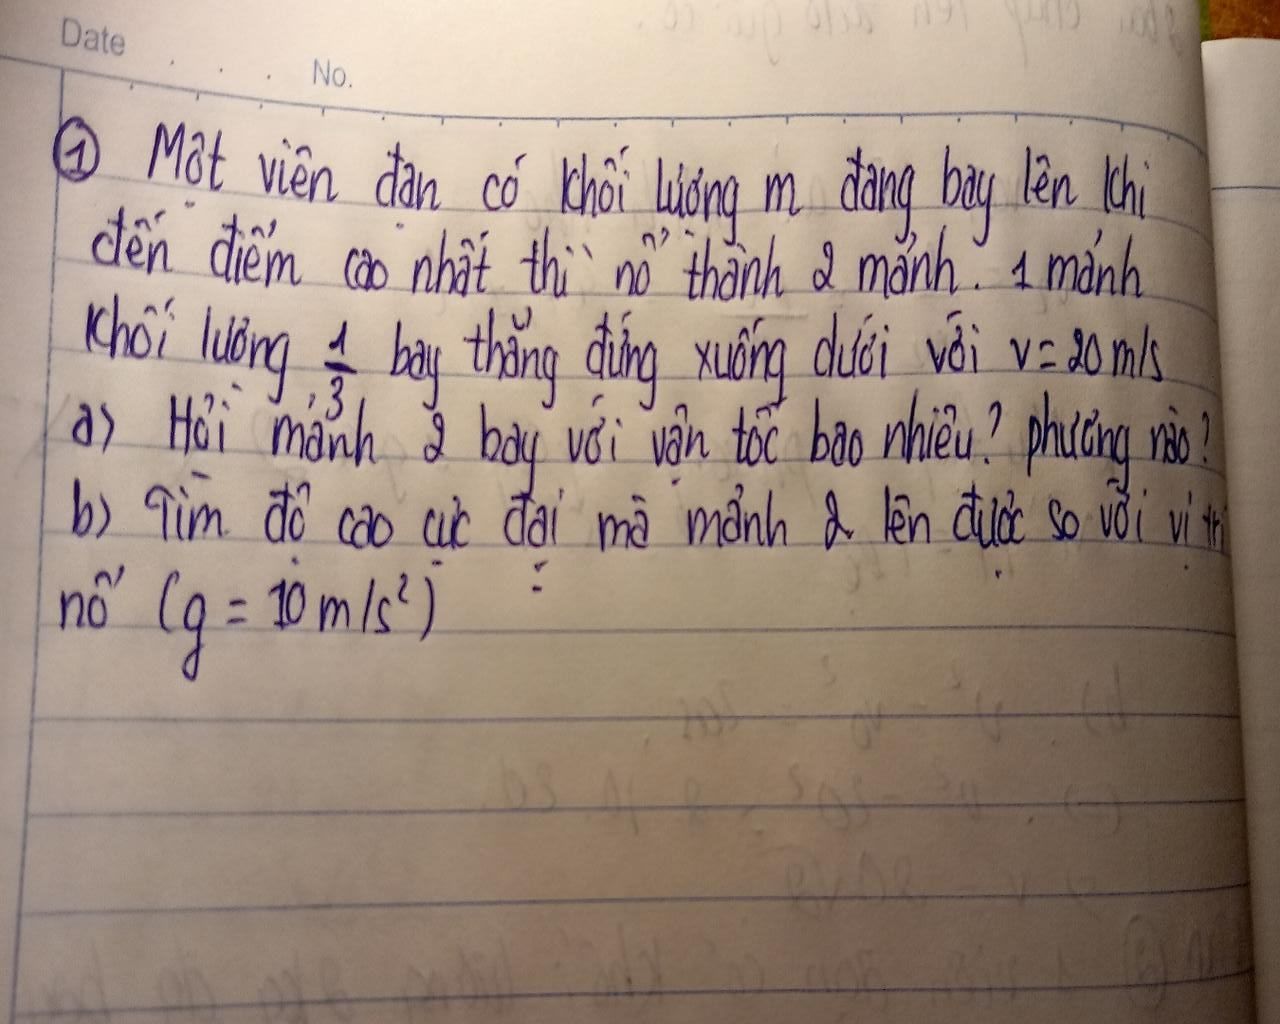 Date
No.
① Một viên đạn có khối lượng m đang bay lên khi
đến điểm cao nhất thì nổ thành 2 mảnh. 1 mảnh
khối lượng 1/3 bay thẳng đứng xuống dưới với v = 20 m/s
a) Hỏi mảnh 2 bay với vận tốc bao nhiêu? phương nào?
b) Tìm độ cao cực đại mà mảnh 2 lên được so với vị trí
nổ (g = 10 m/s²)